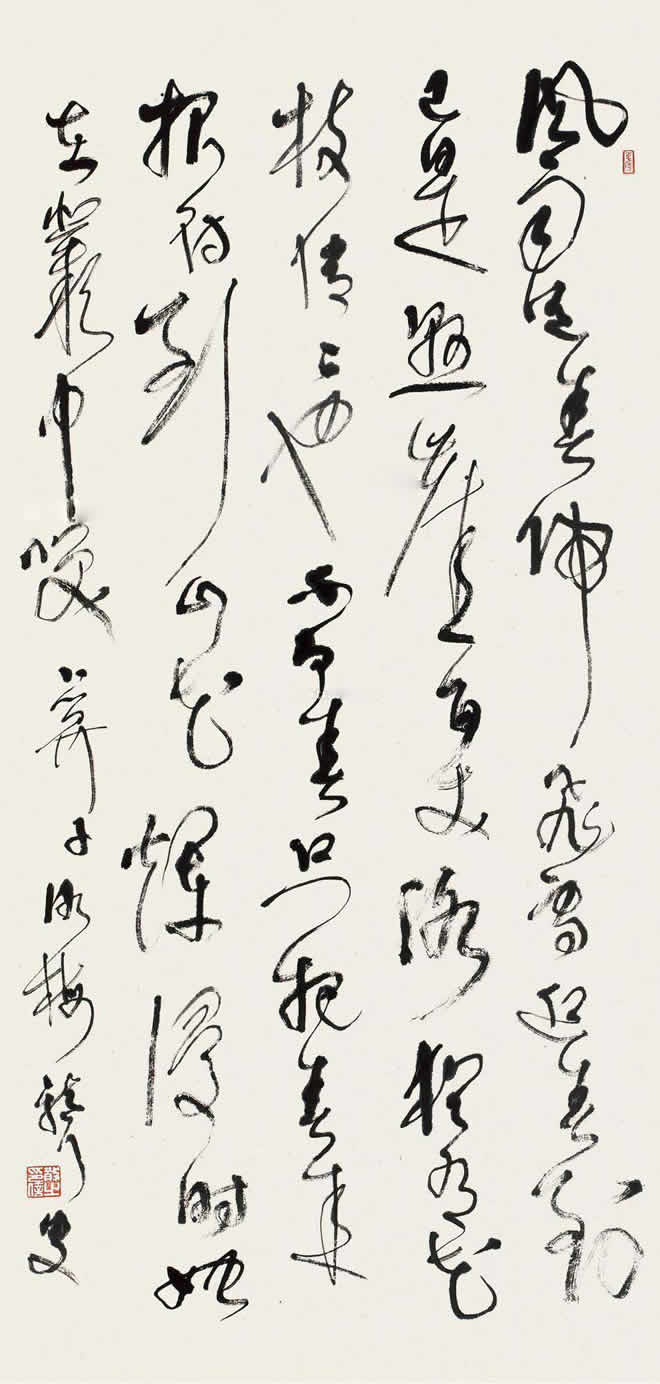 風雨送春歸飛雪迎春到
已是懸崖百丈冰猶有花
枝俏〻也不爭春只把春來
報待到山花爛漫時她
在叢中笑 卜算子詠梅 叟